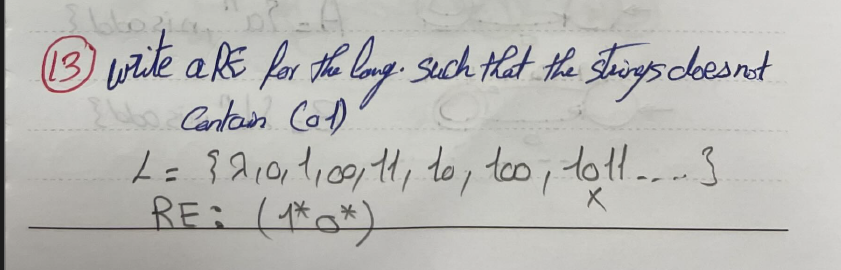 (13) Write a RE for the lang. such that the strings does not
Contain (01)
L = {λ, 0, 1, 00, 11, 10, 100, 1011 ....}
x
RE: (1*0*)